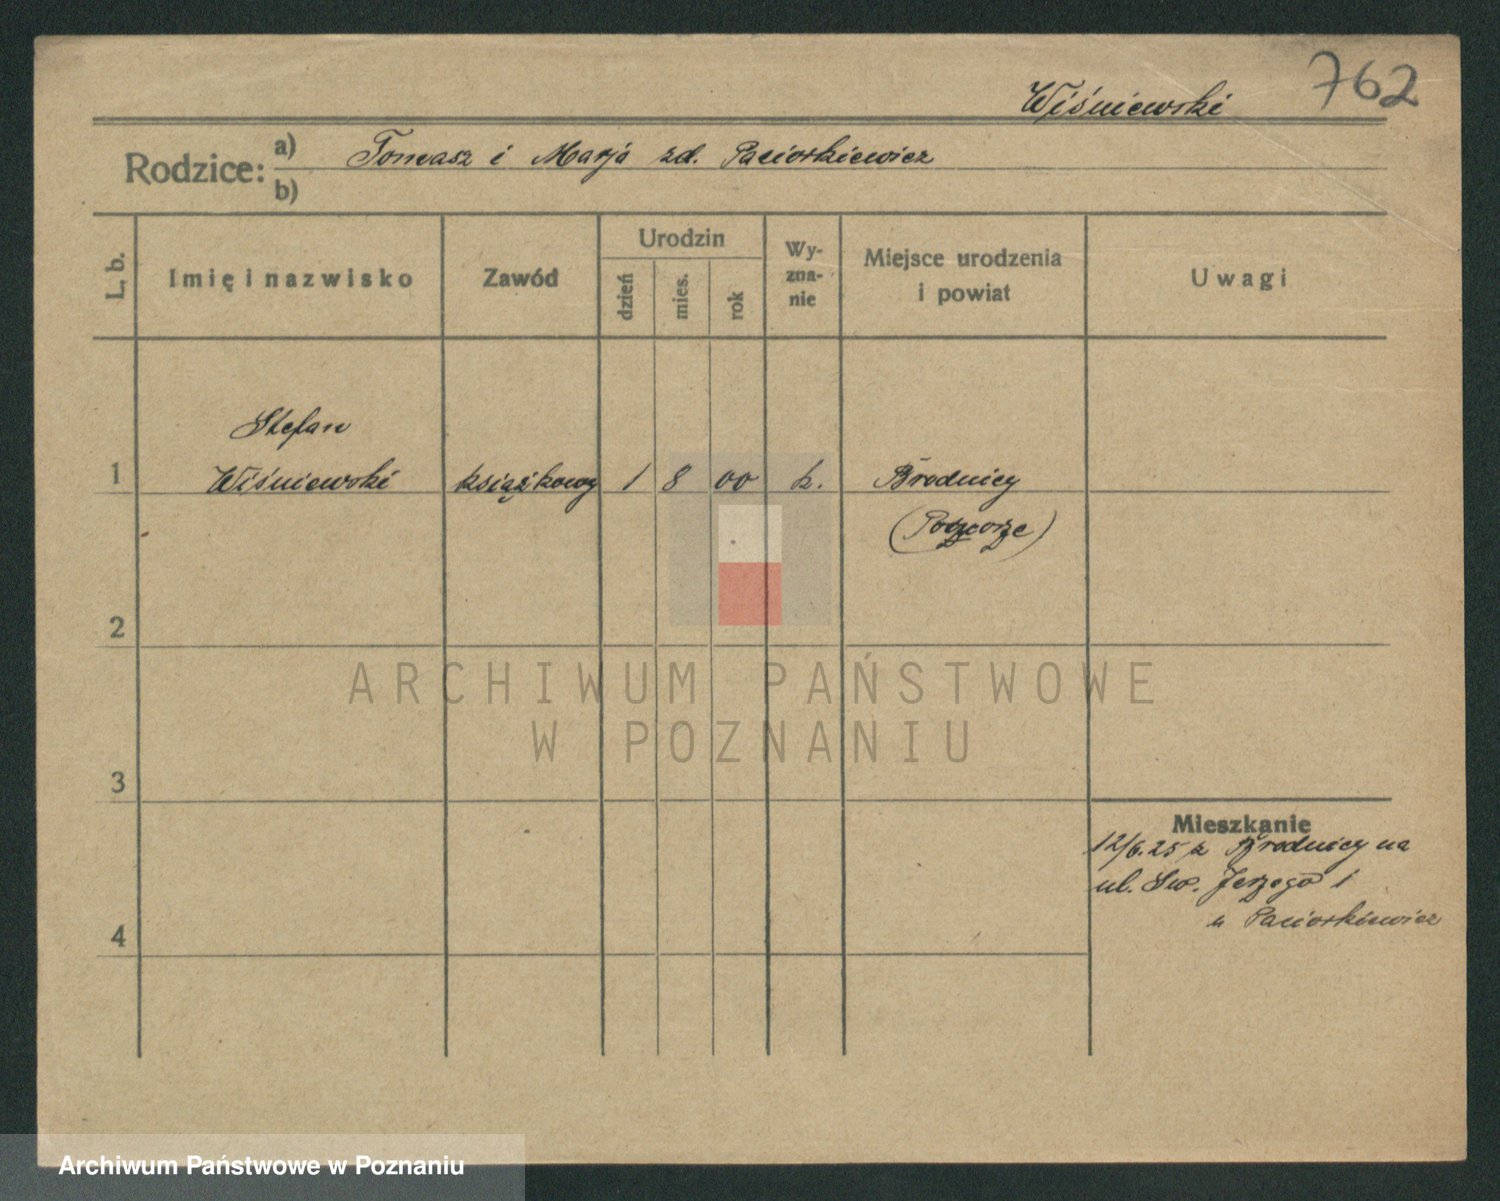 762
Wiśniewski
Rodzice: a) Tomasz i Marja zd. Paciorkiewicz
b)
L. b.
Imię i nazwisko
Zawód
Urodzin
dzień
mies.
rok
Wy-
zna-
nie
Miejsce urodzenia
i powiat
Uwagi
Stefan
1 Wiśniewski książkowy 1 8 00 k. Brodnicy
2
3
4
Mieszkanie
12/6.25 z Brodnicy na
ul. Św. Jerzego 1
u Paciorkiewicz
ARCHIWUM PAŃSTWOWE
W POZNANIU
Archiwum Państwowe w Poznaniu